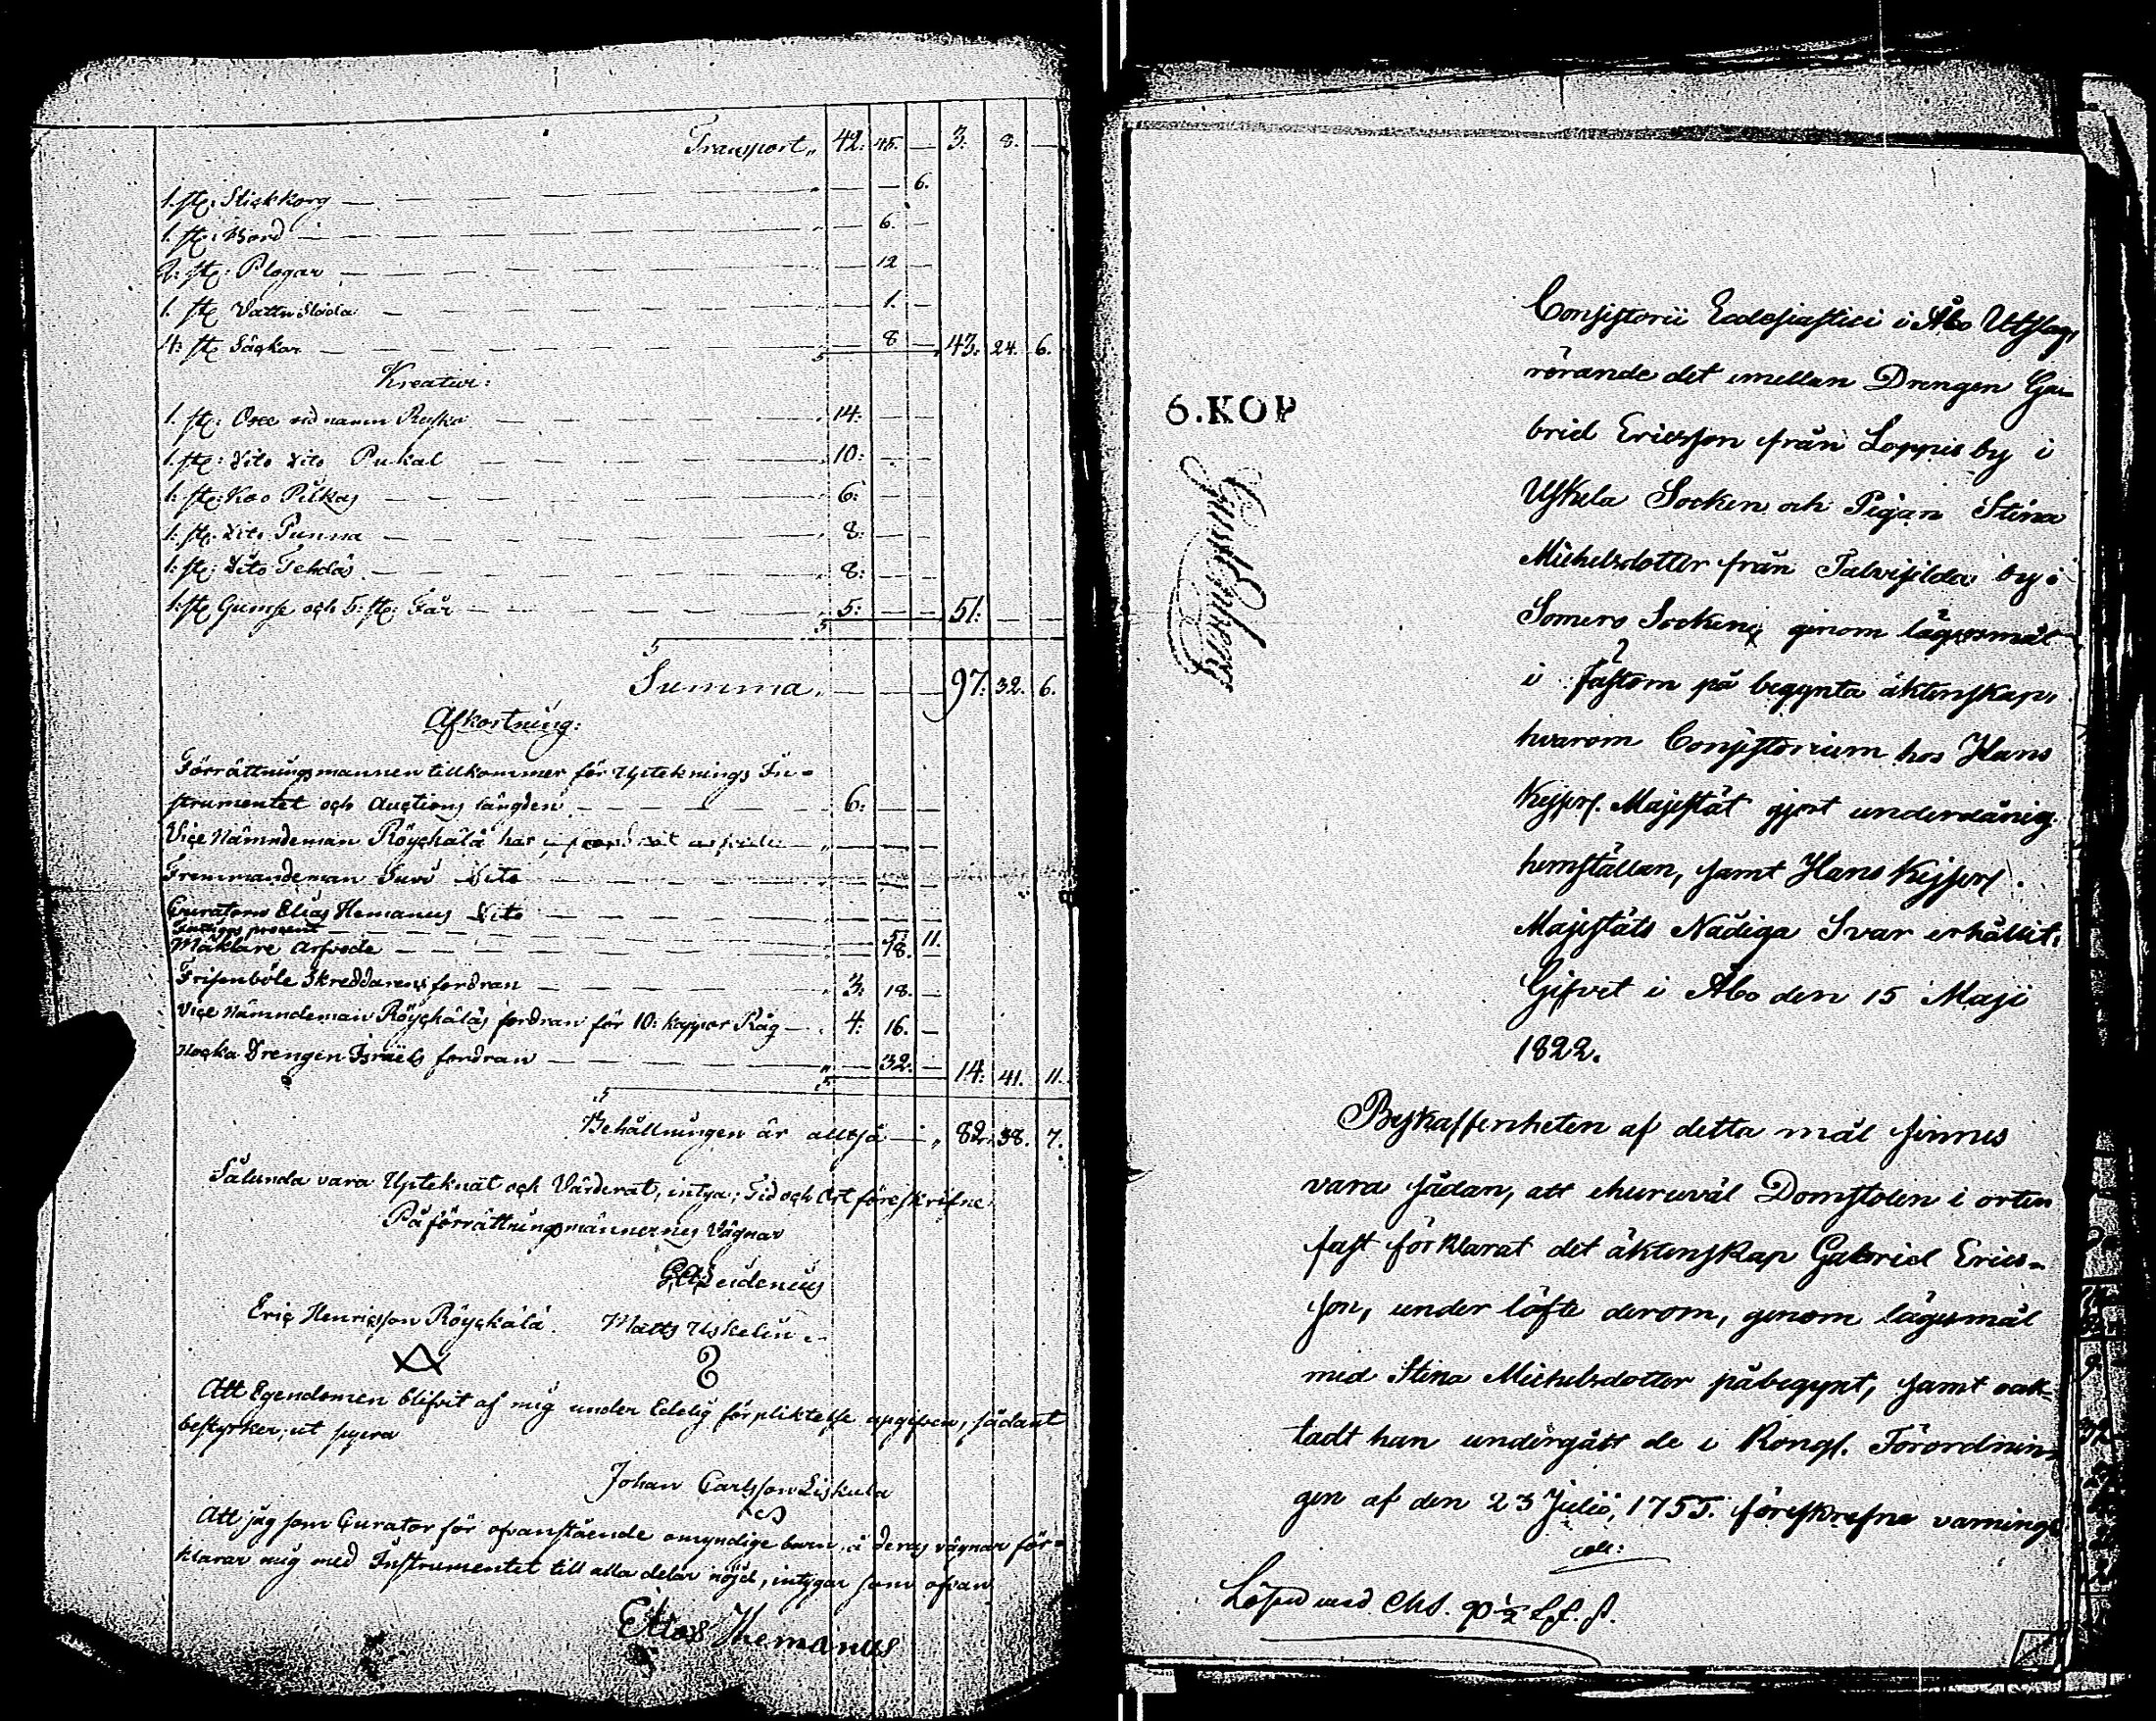 Transport „ 42: 45. — 3: 8. —
1. st: Stickkorg — — 6.
1. st: Bord — 6. —
2: st: Plogar — 12 —
1. st Vattu Släda — 1. —
4: st Säckar — 8 — 43: 24. 6.
Kreatur:
1. st: Oxe vid namn Ruska „ 14: — —
1. st: Dito Dito Pukal „ 10: — —
1: st: Koo Pilkas „ 6: — —
1: st: Dito Punna „ 8: — —
1: st: Dito Tehdäs „ 8: — —
1: st Gumse och 5: st: Får „ 5: — — 51: — —
Summa „ — — — 97: 32. 6.
Afkortning:
Förrättningsmannen tillkommer för Upteknings In-
strumentet och Auctions längden — 6: — —
Vice Nämndeman Röyckälä har
Fremmandeman Suvi Dito — — —
Curatorn Elias Hemanus Dito — — —
Fattigas procent — 5. 11.
Mäklare Arfvode — 18. —
Frisenböle Skreddarens fordran „ 3: 18. —
Vice Nämndeman Röyckäläs fordran för 10: kappar Råg — „ 4: 16. —
Nocka Drengen Israels fordran „ — 32. — 14: 41. 11.
Behållningen är alltså — „ 82: 38. 7.
Sålunda vara Upteknat och Värderat, intyga; Tid och Ort föreskrifne
På förrättningsmännernes Vägnar
Leidenius
Eric Henricsson Röyckälä. Matts Uskelin
Att Egendomen blifvit af mig under Edelig förpliktelse upgifven, sådant
bestyrker, ut supra
Johan Carlsson Liskula
Att jag som Curator för ofvanstående omyndige barn, å deras vägnar för-
klarar mig med Instrumentet till alla delar nöjd, intygar som ofvan
Elias Hemanus
6. KOP
Consistorii Ecclesiastici i Åbo Utslag,
rörande det emellan Drengen Ga-
briel Ericsson från Loppis by i
Uskela Socken och Pigan Stina
Michelsdotter från Talvisilda by i
Somero Socken, genom lägersmål
i fästom på begynta äktenskap,
hvarom Consistorium hos Hans
Kejserl. Majestät gjort underdånig
hemställan, samt Hans Kejserl.
Majestäts Nådiga Svar erhållit.
Gifvet i Åbo den 15 Maji
1822.
Beskaffenheten af detta mål finnes
vara sådan, att ehuruväl Domstolen i orten
fast förklarat det äktenskap Gabriel Erics-
son, under löfte derom, genom lägersmål
med Stina Michelsdotter påbegynt, samt oak-
tadt han undergått de i Kongl. Förordnin-
gen af den 23 Julii, 1755. föreskrefne varnings
coll:
Lösen med Chs.